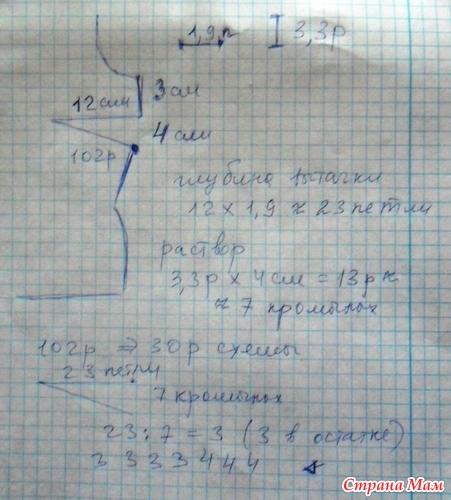 1,9п 3,3р
3 см
12 см
4 см
102р
глубина вытачки
12 х 1,9 ≈ 23 петли
раствор
3,3р х 4см = 13р ≈
≈ 7 кромочных
102р ⇒ 30р схемы
23 петли
7 кромочных
23 : 7 = 3 (3 в остатке)
3 3 3 3 4 4 4
Страна Мам